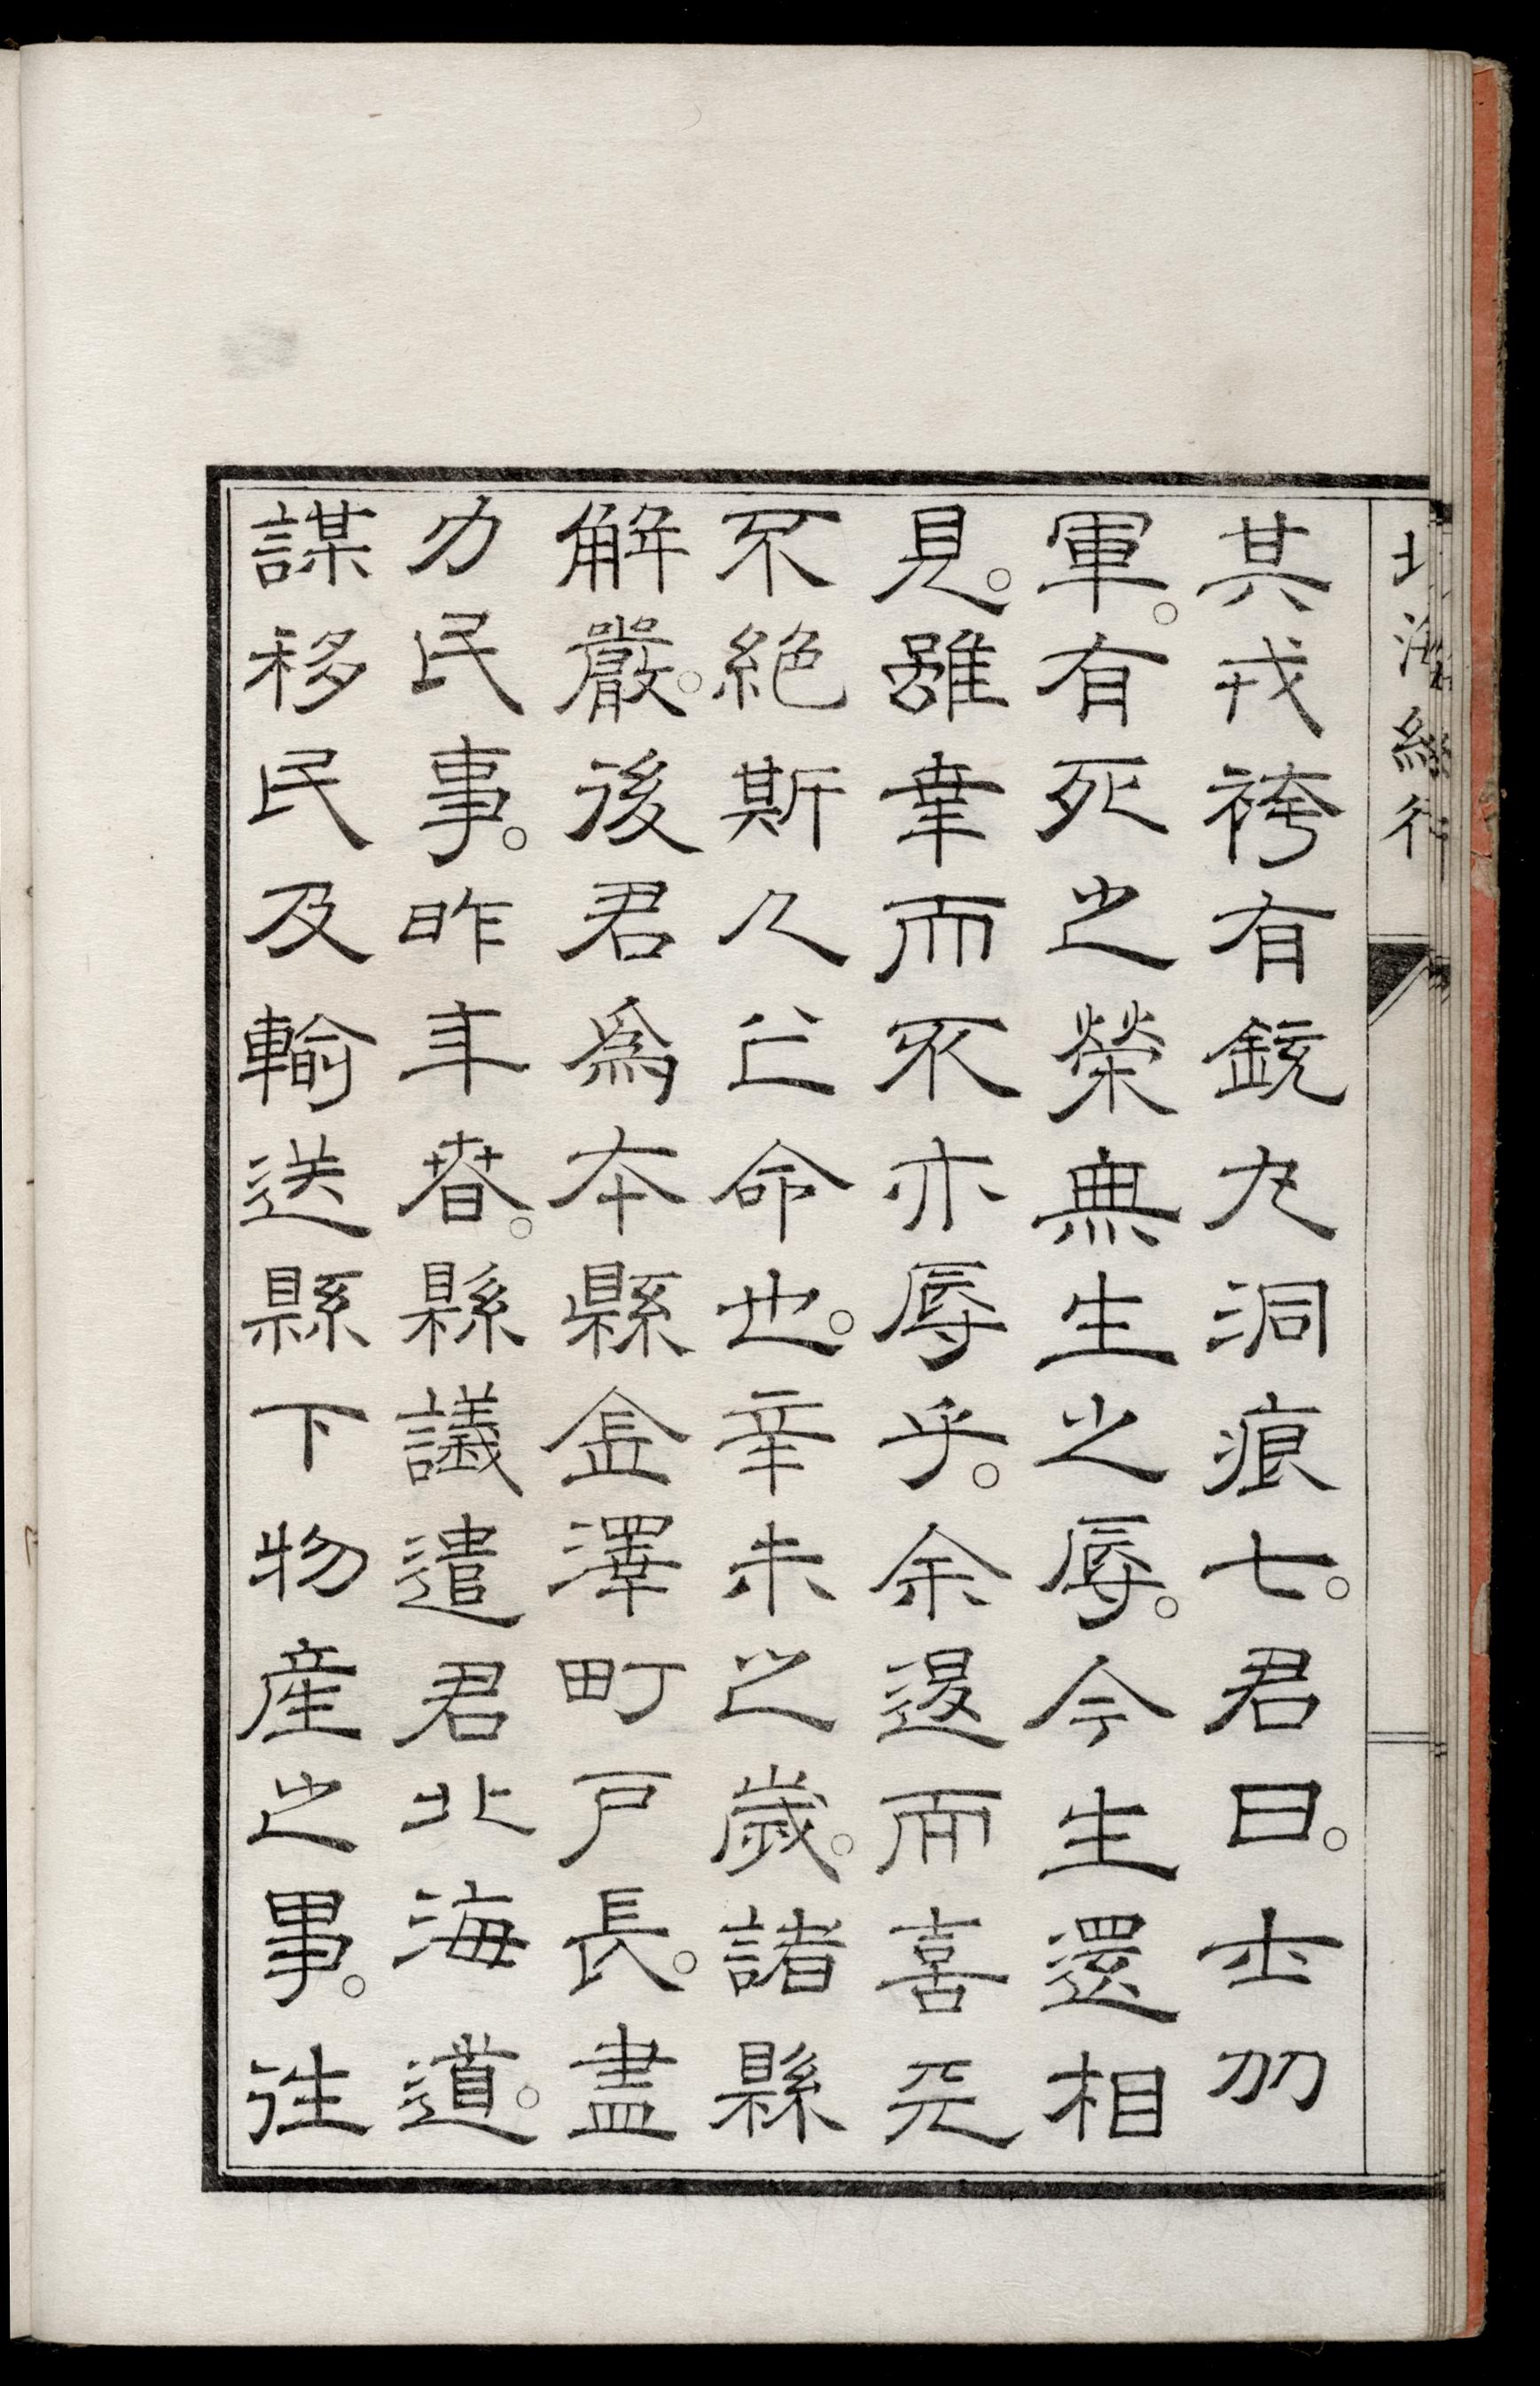 北海紀行
其戎袴有銃丸洞痕七。君曰。士从
軍。有死之榮無生之辱。今生還相
見。雖幸而不亦辱乎。余退而喜天
不絕斯人亡命也。辛未之歲。諸縣
解嚴。後君爲本縣金澤町戶長。盡
力民事。昨年春。縣議遣君北海道。
謀移民及輸送縣下物産之事。往